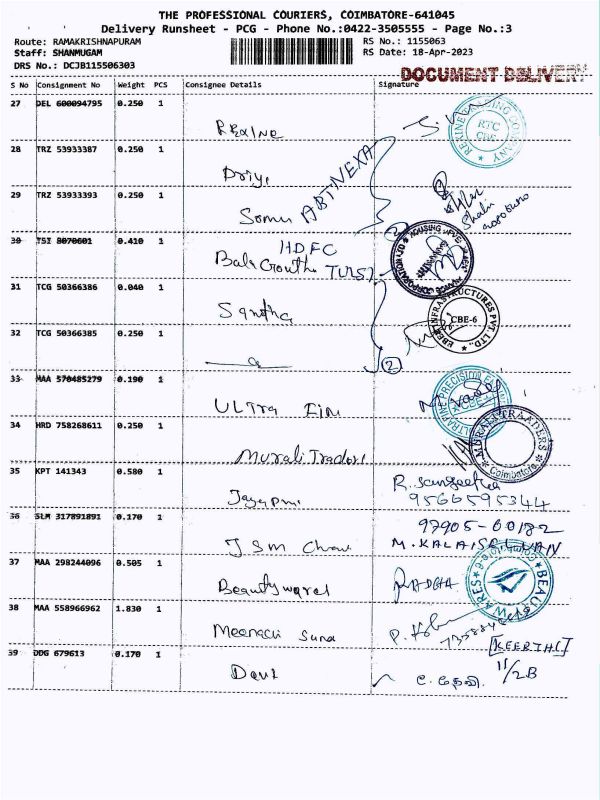 THE PROFESSIONAL COURIERS, COIMBATORE-641045
Delivery Runsheet - PCG - Phone No.:0422-3505555 - Page No.:3
Route: RAMAKRISHNAPURAM RS No.: 1155063
Staff: SHANMUGAM RS Date: 18-Apr-2023
DRS No.: DCJB115506303
DOCUMENT DELIVERY
S No Consignment No Weight PCS Consignee Details Signature
27 DEL 600094795 0.250 1
Rexine
REXINE TRADING COMPANY RTC CBE
28 TRZ 53933387 0.250 1
Priya
ABT NEXA
29 TRZ 53933393 0.250 1
Somu
Shali
30 TSI 8070601 0.410 1
HDFC
Bala Gouthm TULSI
31 TCG 50366386 0.040 1
Santha
INFRASTRUCTURES PVT. LTD. CBE-6
32 TCG 50366385 0.250 1
2
33 MAA 570485279 0.190 1
ULTRA Fine
ULTRA FINE PRECISION
34 HRD 758268611 0.250 1
Murali Traders
MURALI TRAADERS Coimbatore
35 KPT 141343 0.580 1
Jayapmi
R. Sangeetha
9566595344
36 SLM 317891891 0.170 1
JSM
97905-60182
M. KALAISELVAN
37 MAA 298244096 0.505 1
Beautywares
RADHA
BEAUTY WARES
38 MAA 558966962 1.830 1
Meenachi Suna
[KEERTHI]
39 DDG 679613 0.170 1
Devi
11/2B